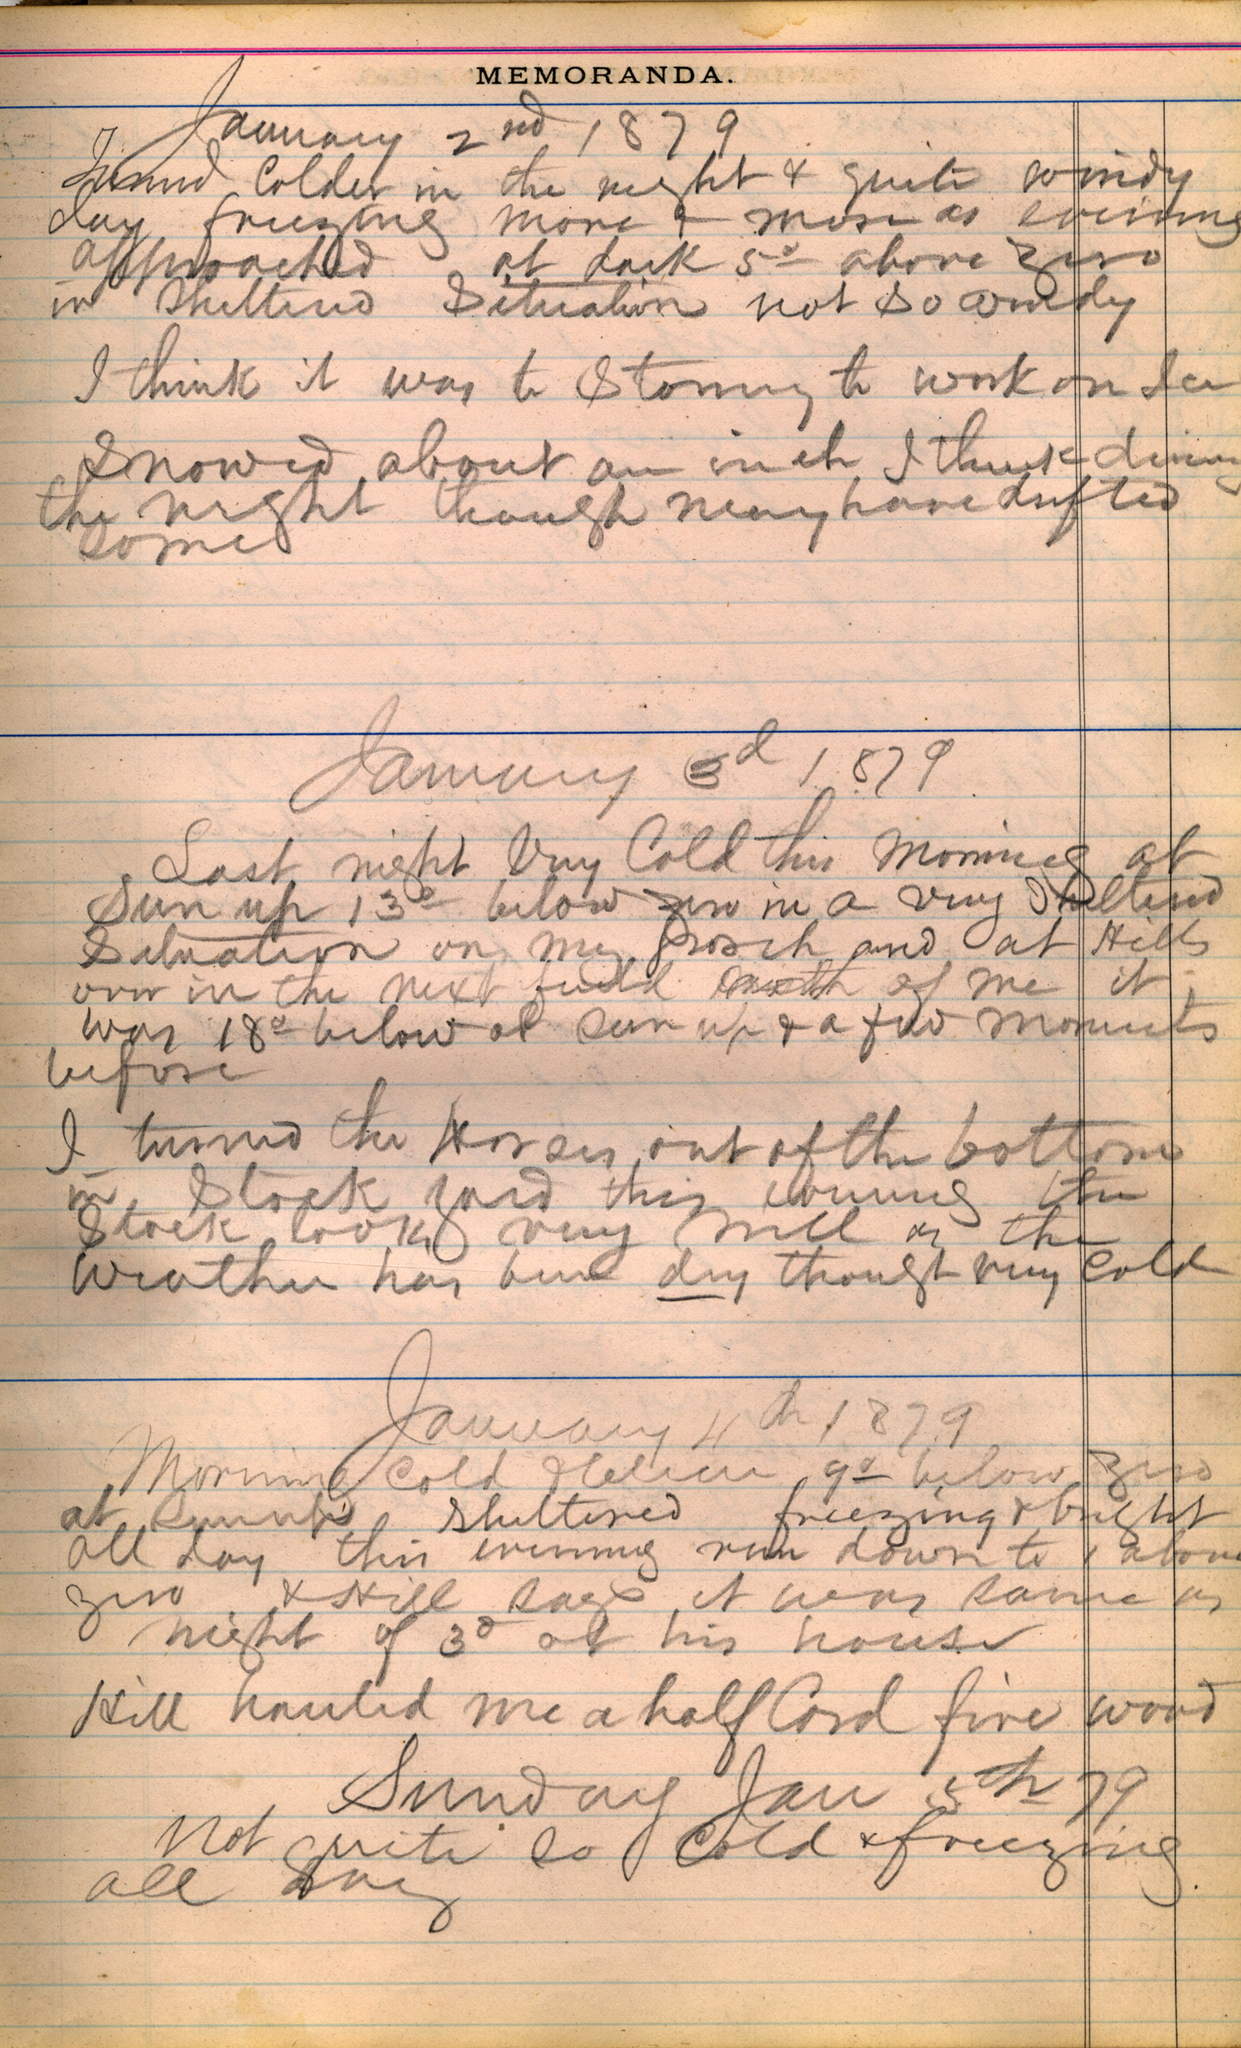 MEMORANDA.
January 2nd 1879
Turned Colder in the night & quite windy
day freezing more & more as evening
approached at dark 5° above zero
in Sheltered Situation not so windy
I think it was to Stormy to work on Ice
Snowed about an inch I think during
the night though may have drifted
some
January 3d 1879
Last night Very Cold this Morning at
Sun up 13° below zero in a very Sheltered
Situation on my porch and at Hills
over in the next field north of me it
was 18° below at sun up & a few moments
before
I turned the Horses out of the bottom
in Stock yard this evening the
Stock looks very well as the
Weather has been dry though very Cold
January 4th 1879
Morning Cold & Clear 9° below zero
at sunup sheltered freezing & bright
all day this evening run down to 1 above
zero & Hill says it was same as
night of 3d at his house
Hill hauled me a half Cord fire wood
Sunday Jan 5th 79
Not quite so Cold & freezing
all day